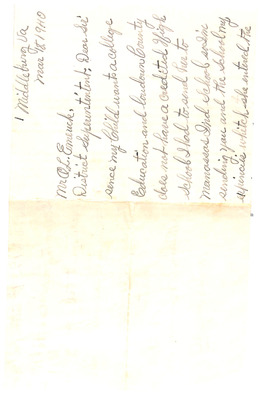 1 Middleburg Va
Mar 18, 1940
Mr O.L. Emerick,
District Superintendent; Dear Sir
since my Child wants a college
Education and Loudoun County
does not have a credited High
School I had to send her to
Manassas Ind School. I'm
sending you and the School
expences while she entered the